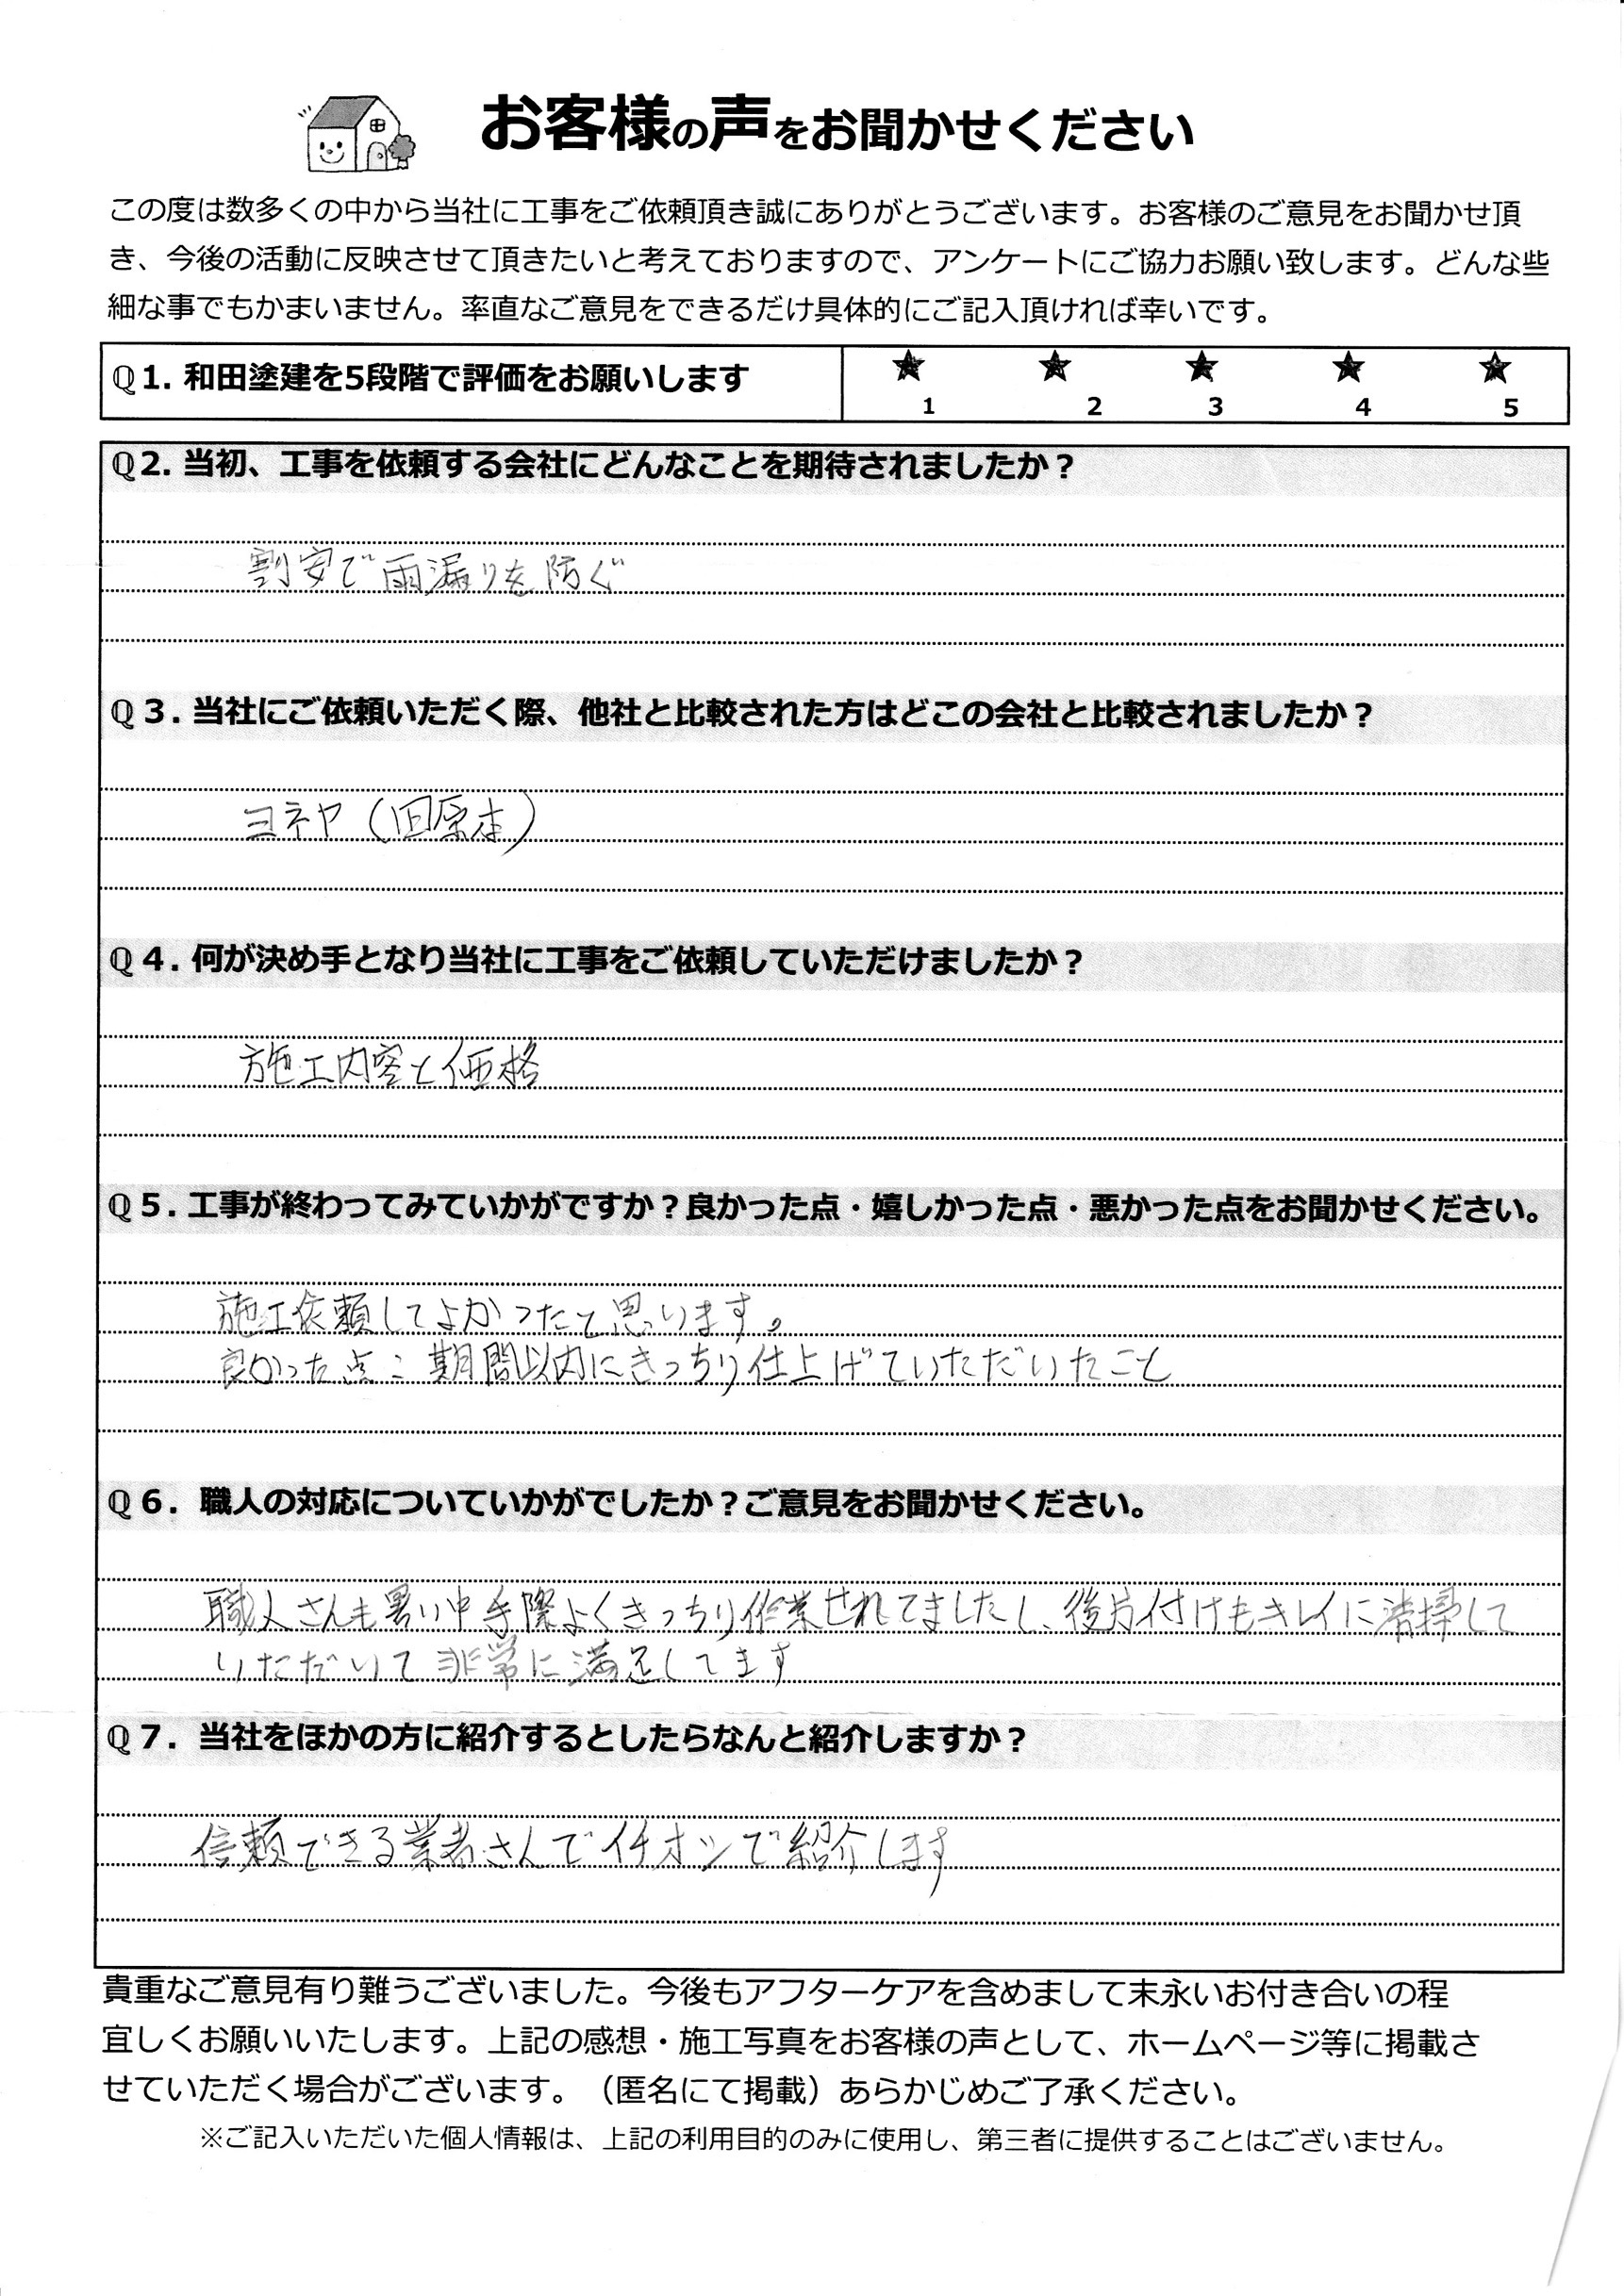 お客様の声をお聞かせください
この度は数多くの中から当社に工事をご依頼頂き誠にありがとうございます。お客様のご意見をお聞かせ頂
き、今後の活動に反映させて頂きたいと考えておりますので、アンケートにご協力お願い致します。どんな些
細な事でもかまいません。率直なご意見をできるだけ具体的にご記入頂ければ幸いです。
Q1. 和田塗建を5段階で評価をお願いします
★ ★ ★ ★ ★
1 2 3 4 5
Q2. 当初、工事を依頼する会社にどんなことを期待されましたか？
割安で雨漏りを防ぐ
Q３. 当社にご依頼いただく際、他社と比較された方はどこの会社と比較されましたか？
ヨネヤ（田原本）
Q４. 何が決め手となり当社に工事をご依頼していただけましたか？
施工内容と価格
Q５. 工事が終わってみていかがですか？良かった点・嬉しかった点・悪かった点をお聞かせください。
施工依頼してよかったと思います。
良かった点：期間以内にきっちり仕上げていただいたこと
Q６. 職人の対応についていかがでしたか？ご意見をお聞かせください。
職人さんも暑い中手際よくきっちり作業されてましたし、後片付けもキレイに清掃して
いただいて非常に満足してます
Q７. 当社をほかの方に紹介するとしたらなんと紹介しますか？
信頼できる業者さんでイチオシで紹介します
貴重なご意見有り難うございました。今後もアフターケアを含めまして末永いお付き合いの程
宜しくお願いいたします。上記の感想・施工写真をお客様の声として、ホームページ等に掲載さ
せていただく場合がございます。（匿名にて掲載）あらかじめご了承ください。
※ご記入いただいた個人情報は、上記の利用目的のみに使用し、第三者に提供することはございません。